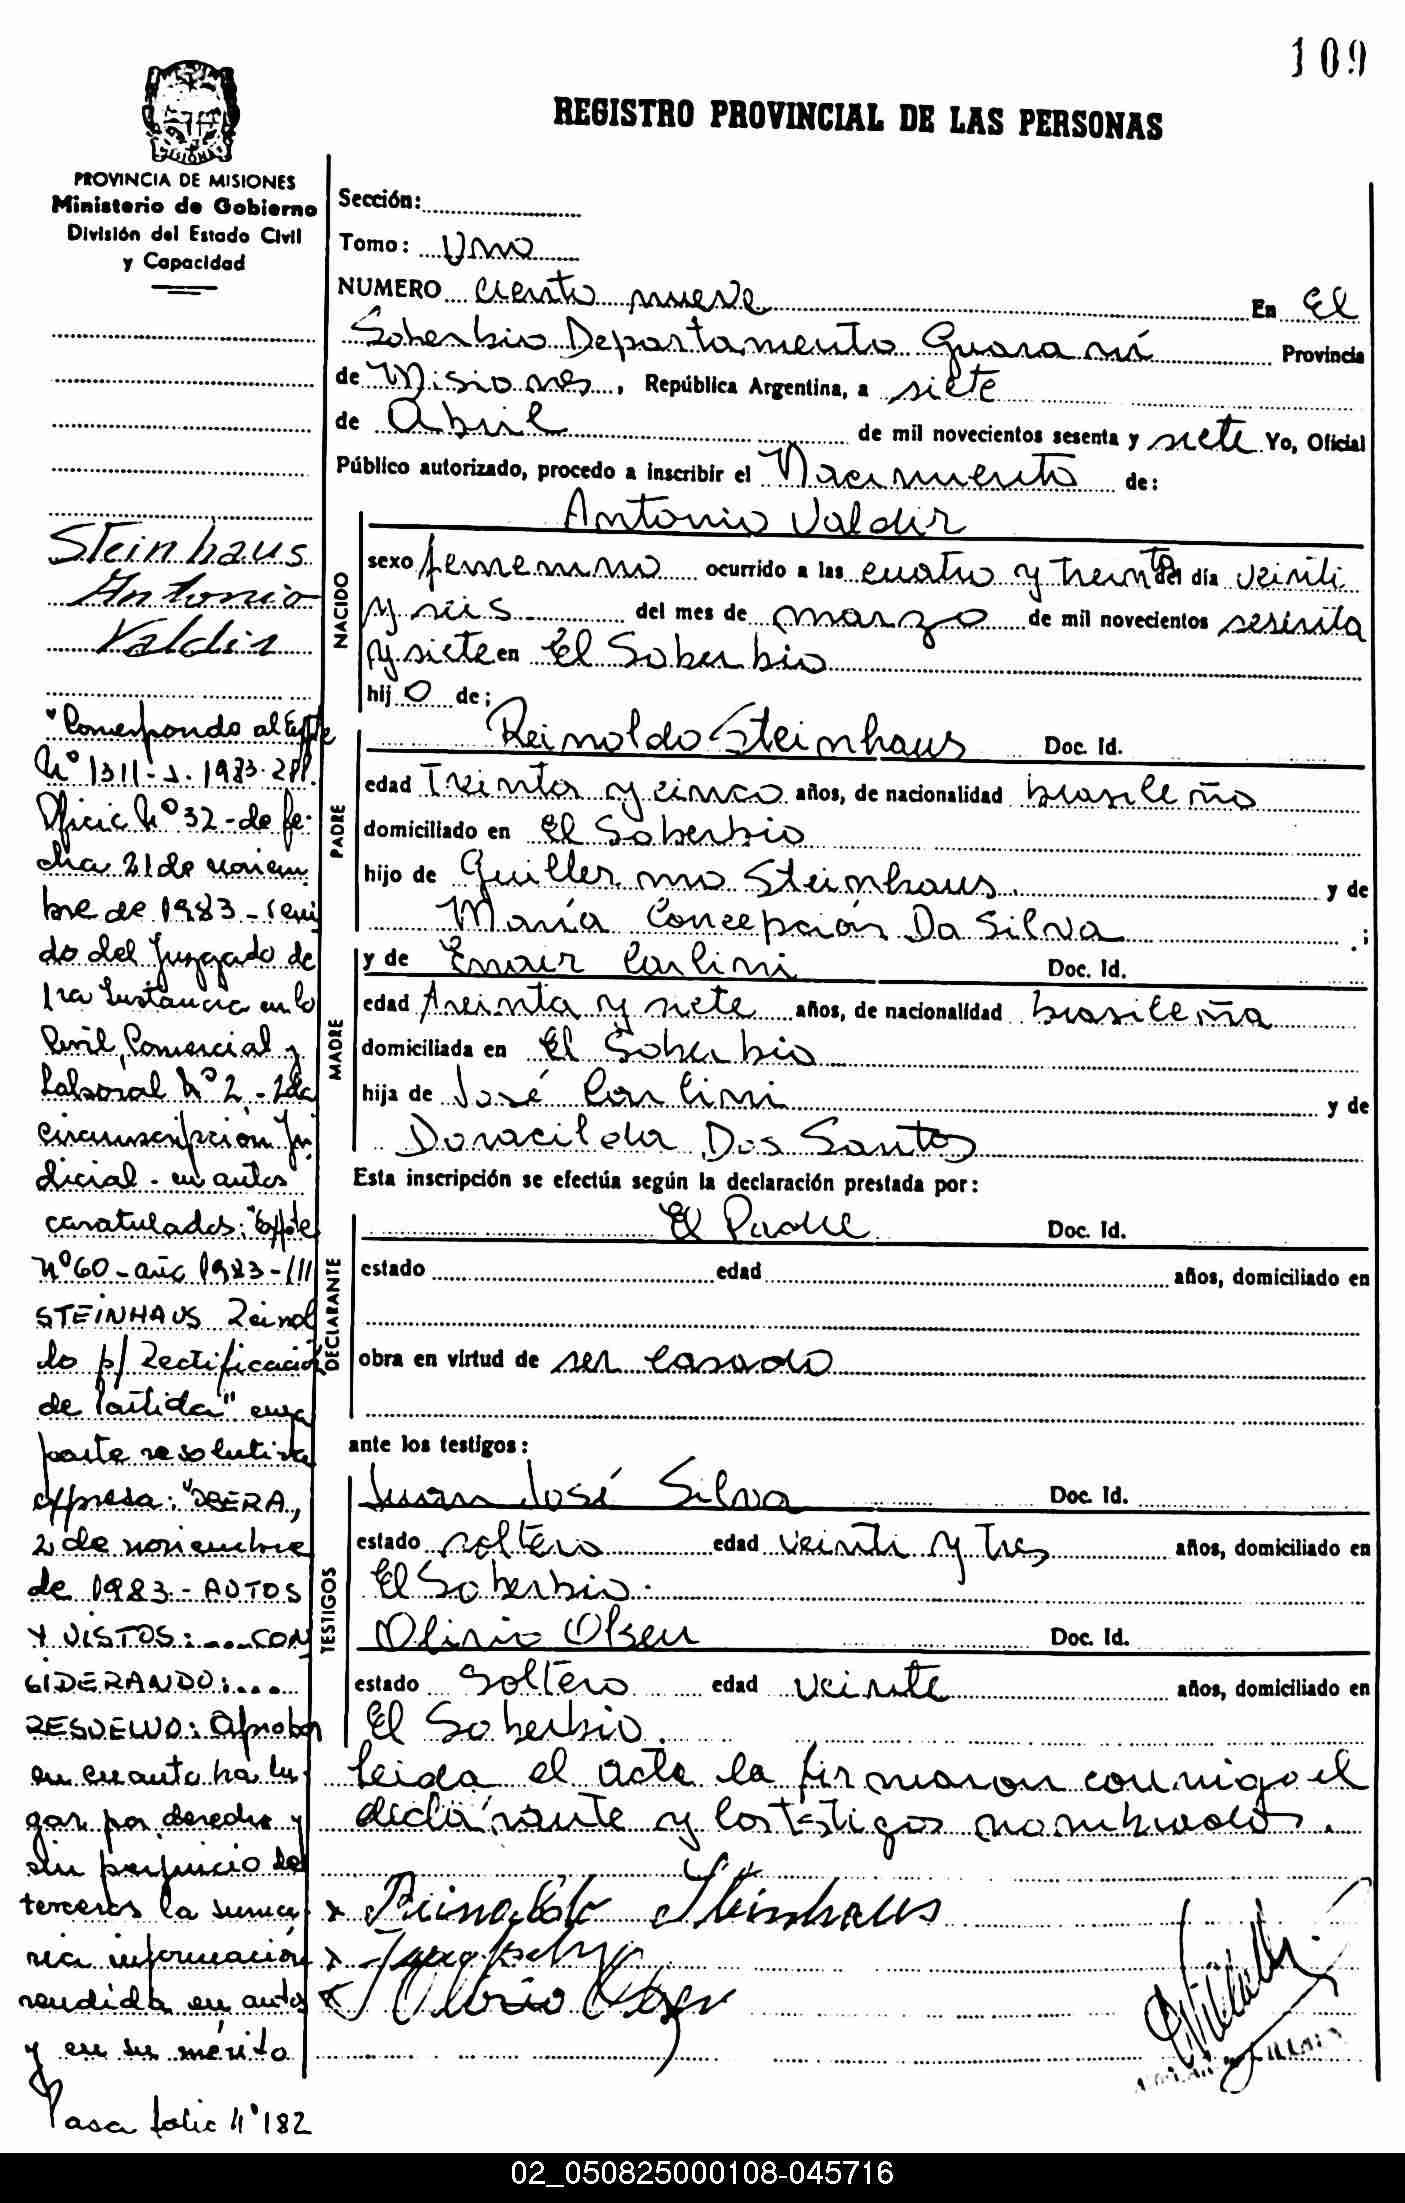 109
REGISTRO PROVINCIAL DE LAS PERSONAS
MISIONES
PROVINCIA DE MISIONES
Ministerio de Gobierno
División del Estado Civil
y Capacidad
Steinhaus
Antonio
Valdir
"Corresponde al Expte
Nº 1311-J-1983-
Oficio Nº 32-de fe-
cha 21 de noviem
bre de 1983-
do del Juzgado de
1ra Instancia en lo
Civil, Comercial y
Laboral Nº 2 - 2da
circunscripción Ju
dicial - en autos
caratulados: "Expte
Nº 60-año 1983-
STEINHAUS Reinol
do p/ Rectificación
de Partida" cuya
parte resolutiva
expresa: "OBERA,
2 de noviembre
de 1983.- AUTOS
Y VISTOS: ... CON
SIDERANDO: ...
RESUELVO: Aprobar
en cuanto ha lu-
gar por derecho y
sin perjuicio de
terceros la suma-
ria información
rendida en autos
y en su mérito
Pasa folio Nº 182
Sección:
Tomo: Uno
NUMERO ciento nueve En El
Soberbio Departamento Guaraní Provincia
de Misiones, República Argentina, a siete
de Abril de mil novecientos sesenta y siete Yo, Oficial
Público autorizado, procedo a inscribir el Nacimiento de:
NACIDO
Antonio Valdir
sexo femenino ocurrido a las cuatro y treinta del día veinti
y seis del mes de marzo de mil novecientos sesenta
y siete en El Soberbio
hij o de;
PADRE
Reinoldo Steinhaus Doc. Id.
edad Treinta y cinco años, de nacionalidad brasileño
domiciliado en El Soberbio
hijo de Guillermo Steinhaus. y de
María Concepción Da Silva ;
MADRE
y de Enair Carlini Doc. Id.
edad treinta y siete años, de nacionalidad brasileña
domiciliada en El Soberbio
hija de José Carlini y de
Doracilda Dos Santos
Esta inscripción se efectúa según la declaración prestada por:
DECLARANTE
El Padre Doc. Id.
estado edad años, domiciliado en
obra en virtud de ser casado
ante los testigos:
TESTIGOS
Juan José Silva Doc. Id.
estado soltero edad veinti y tres años, domiciliado en
El Soberbio.
Olirio Olsen Doc. Id.
estado Soltero edad veinte años, domiciliado en
El Soberbio.
Leida el acta la firmaron conmigo el
declarante y los testigos nombrados.
x Reinoldo Steinhaus
x
x Olirio Olsen
02_050825000108-045716